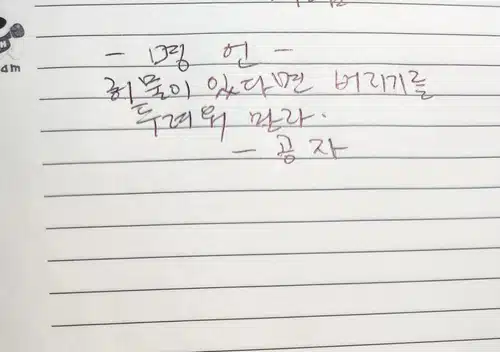 - 명 언 -
허물이 있다면 버리기를
두려워 말라.
- 공 자